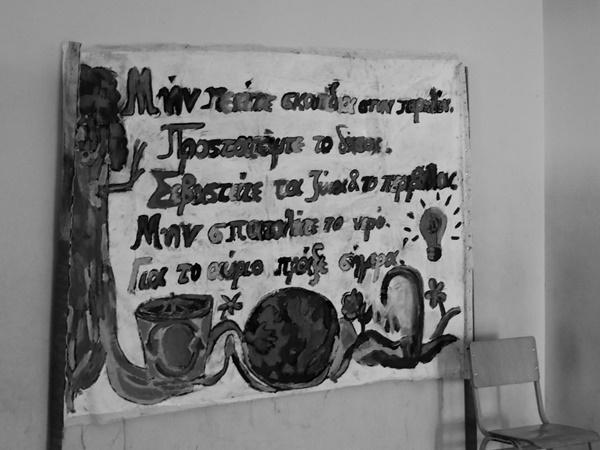 Μήν πετάτε σκουπίδια στην παραλία.
Προστατέψτε το δάσος.
Σεβαστείτε τα ζώα & το περιβάλλον.
Μην σπαταλάτε το νερό.
Για το αύριο πράξε σήμερα.